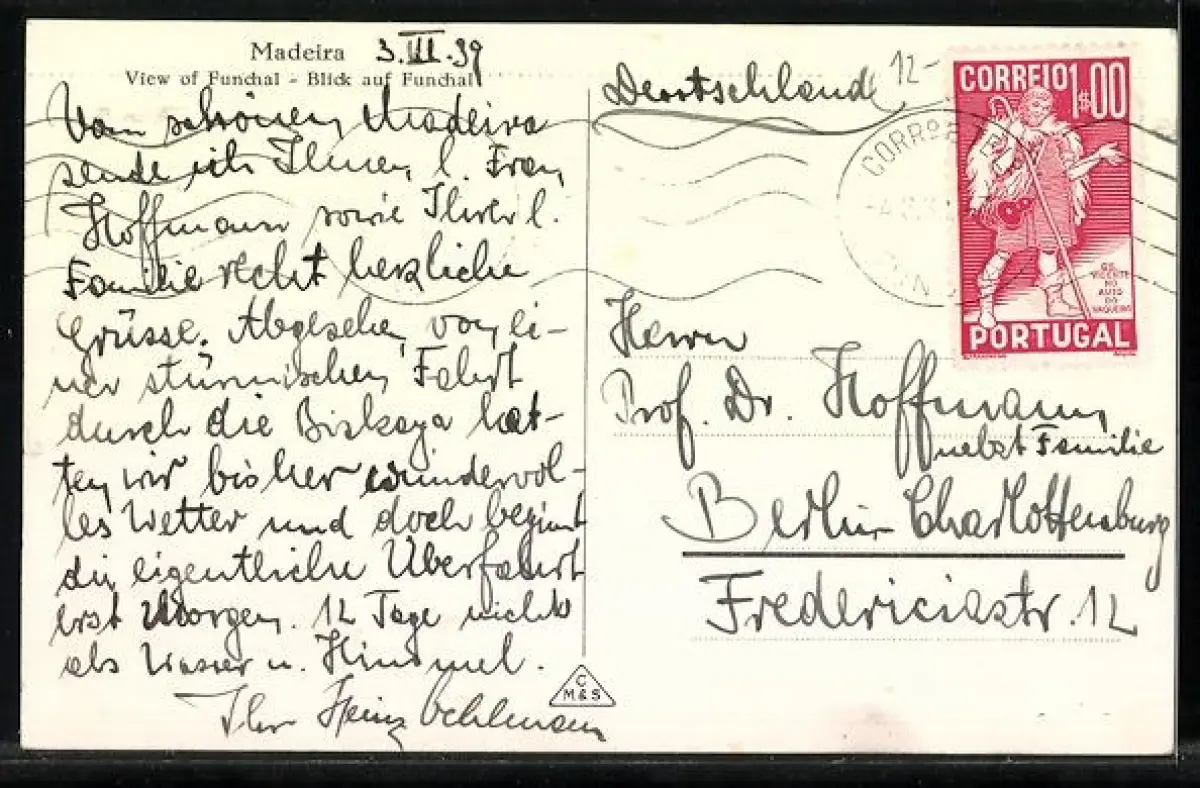 Madeira 3.III.39
View of Funchal - Blick auf Funchal
Vom schönen Madeira
sende ich Ihnen, l. Frau
Hoffmann sowie Ihrer l.
Familie recht herzliche
Grüsse. Abgesehen von ei-
ner stürmischen Fahrt
durch die Biskaya hat-
ten wir bisher wundervol-
les Wetter und doch beginnt
die eigentliche Überfahrt
erst Morgen. 12 Tage nichts
als Wasser u. Himmel.
Ihr Heinz
C
M&S
Deutschland
12-
CORREIO 1$00
GIL
VICENTE
NO
AUTO
DO
VAQUEIRO
PORTUGAL
Herrn
Prof. Dr. Hoffmann
nebst Familie
Berlin-Charlottenburg
Fredericiastr. 12